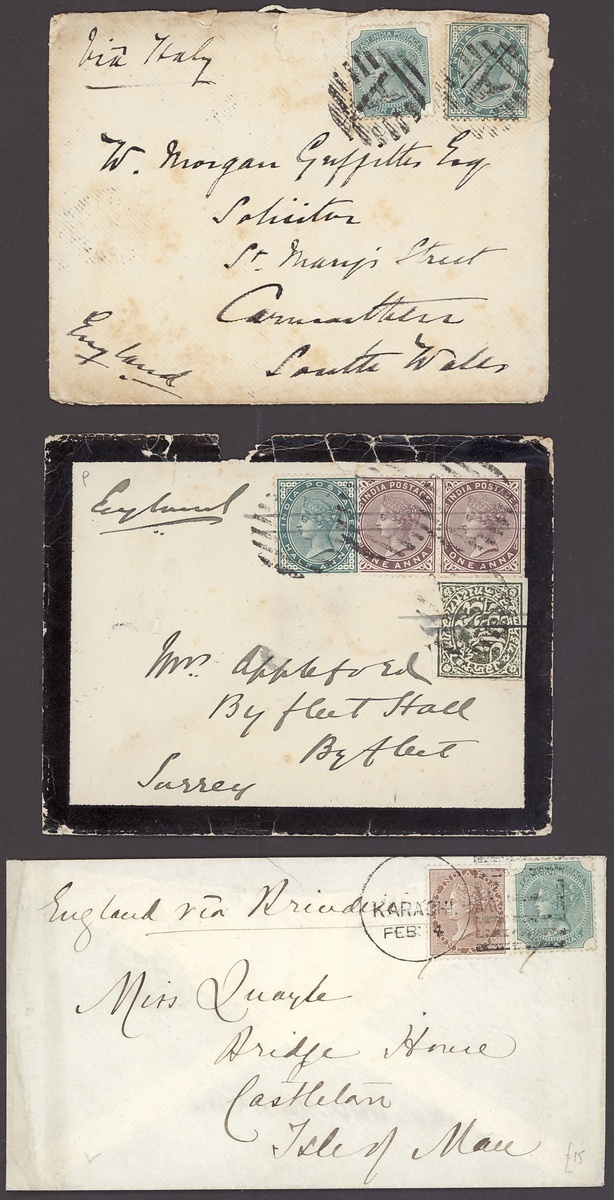 Via Italy
EAST INDIA POSTAGE
INDIA POSTAGE
W. Morgan Griffiths Esq
Solicitor
St. Mary's Street
Carmarthen
England
South Wales
England
INDIA POSTAGE
HALF ANNA
INDIA POSTAGE
ONE ANNA
INDIA POSTAGE
ONE ANNA
Mrs. Appleford
Byfleet Hall
Byfleet
Surrey
England via Brindisi
KARACHI
FEB: 4
Miss Quayle
Bridge House
Castleton
Isle of Man
£15